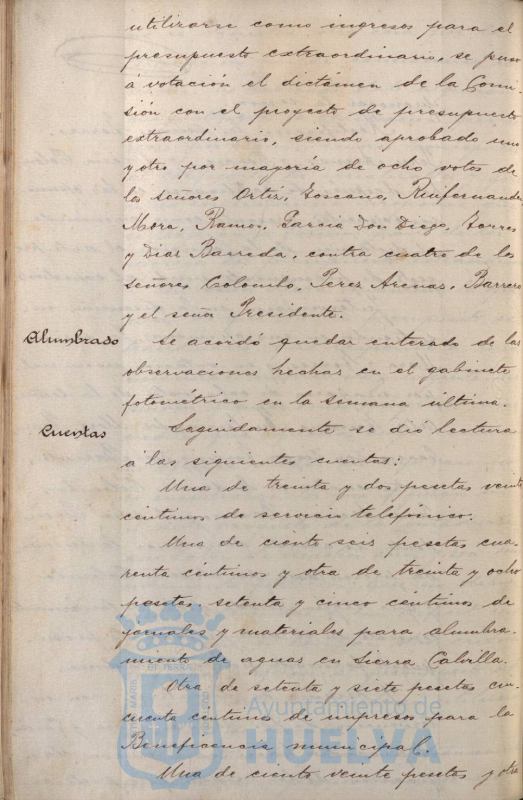 utilizarse como ingresos para el
presupuesto extraordinario, se puso
á votación el dictámen de la Comi-
sión con el proyecto de presupuesto
extraordinario, siendo aprobado uno
y otro por mayoría de ocho votos de
los señores Ortiz, Toscano, Ruifernandez
Mora, Ramos, García Don Diego, Torres
y Diaz Barreda, contra cuatro de los
señores Colombo, Perez Arenas, Barrero
y el señor Presidente.
Alumbrado
Se acordó quedar enterado de las
observaciones hechas en el gabinete
fotométrico en la semana última.
Cuentas
Seguidamente se dió lectura
á las siguientes cuentas:
Una de treinta y dos pesetas veinte
céntimos de servicio telefónico.
Una de ciento seis pesetas cua-
renta céntimos y otra de treinta y ocho
pesetas, setenta y cinco céntimos de
jornales y materiales para alumbra-
miento de aguas en Sierra Calvilla.
Otra de setenta y siete pesetas cin-
cuenta céntimos de impresos para la
Beneficencia municipal.
Una de ciento veinte pesetas y otra
Ayuntamiento de
HUELVA